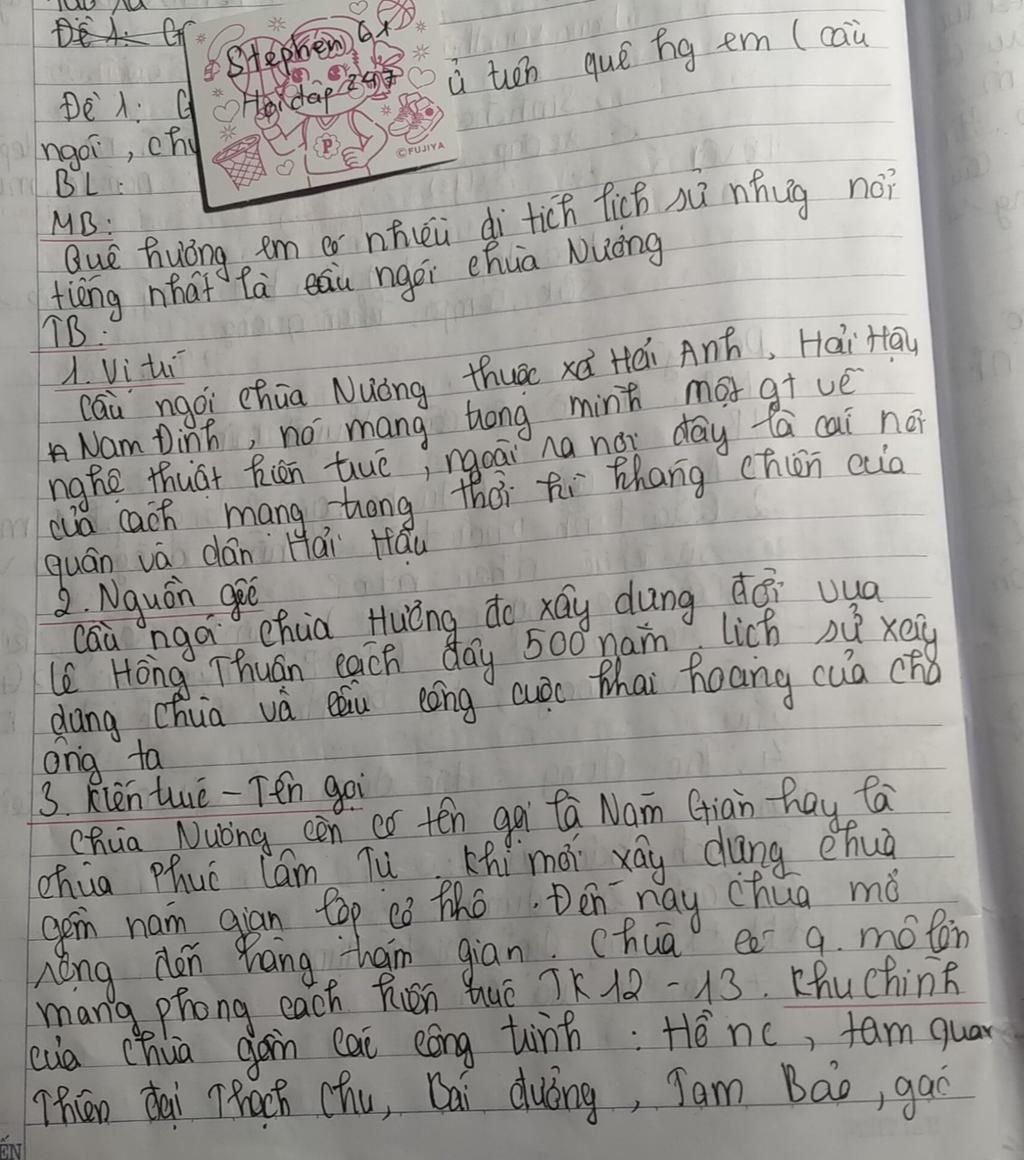 Đề 1: G
Stephen 61
Hoidap 247
P
©FUJIYA
Đề 1: G ử tiến quê hg em (cầu
ngói, chù
BL:
MB:
Quê hương em có nhiều di tích lịch sử nhưg nổi
tiếng nhất là cầu ngói chùa Nương
TB:
1. Vị trí
Cầu ngói chùa Nương thuộc xã Hải Anh, Hải Hậu
Nam Định, nó mang trong mình một gt về
nghệ thuật kiến trúc, ngoài ra nơi đây là cái nơi
của cách mang trong thời kì kháng chiến của
quân và dân Hải Hậu
2. Nguồn gốc
Cầu ngói chùa Hương đc xây dưng đời vua
Lê Hồng Thuân cách đây 500 năm. Lich sử xây
dưng chùa và cầu công cuộc khai hoang của cha
ông ta
3. Kiến trúc - Tên gọi
Chùa Nương còn có tên gọi là Nam Gian hay là
chùa Phúc Lâm Tự. Khi mới xây dưng chùa
gồm năm gian lớp cỏ khô. Đến nay chùa mở
rộng đến hàng trăm gian. Chùa có q. mô lớn
mang phong cách kiến trúc TK 12 - 13. Khu chính
của chùa gồm các công trình: Hồ nc, tam quan
Thiên đại Thạch Chu, Bái đường, Tam Bảo, gác